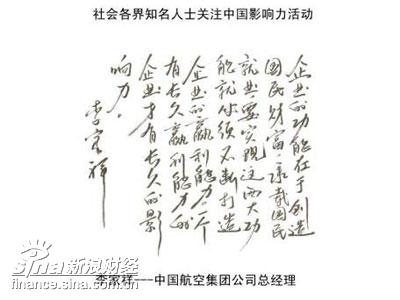 社会各界知名人士关注中国影响力活动
企业的功能在于创造
国民财富、承载国民
就业要实现这两大功
能就必须不断打造
企业的赢利能力。一个
有长久赢利能力的
企业才有长久的影
响力。
李家祥
sina新浪财经
finance.sina.com.cn
李家祥---中国航空集团公司总经理